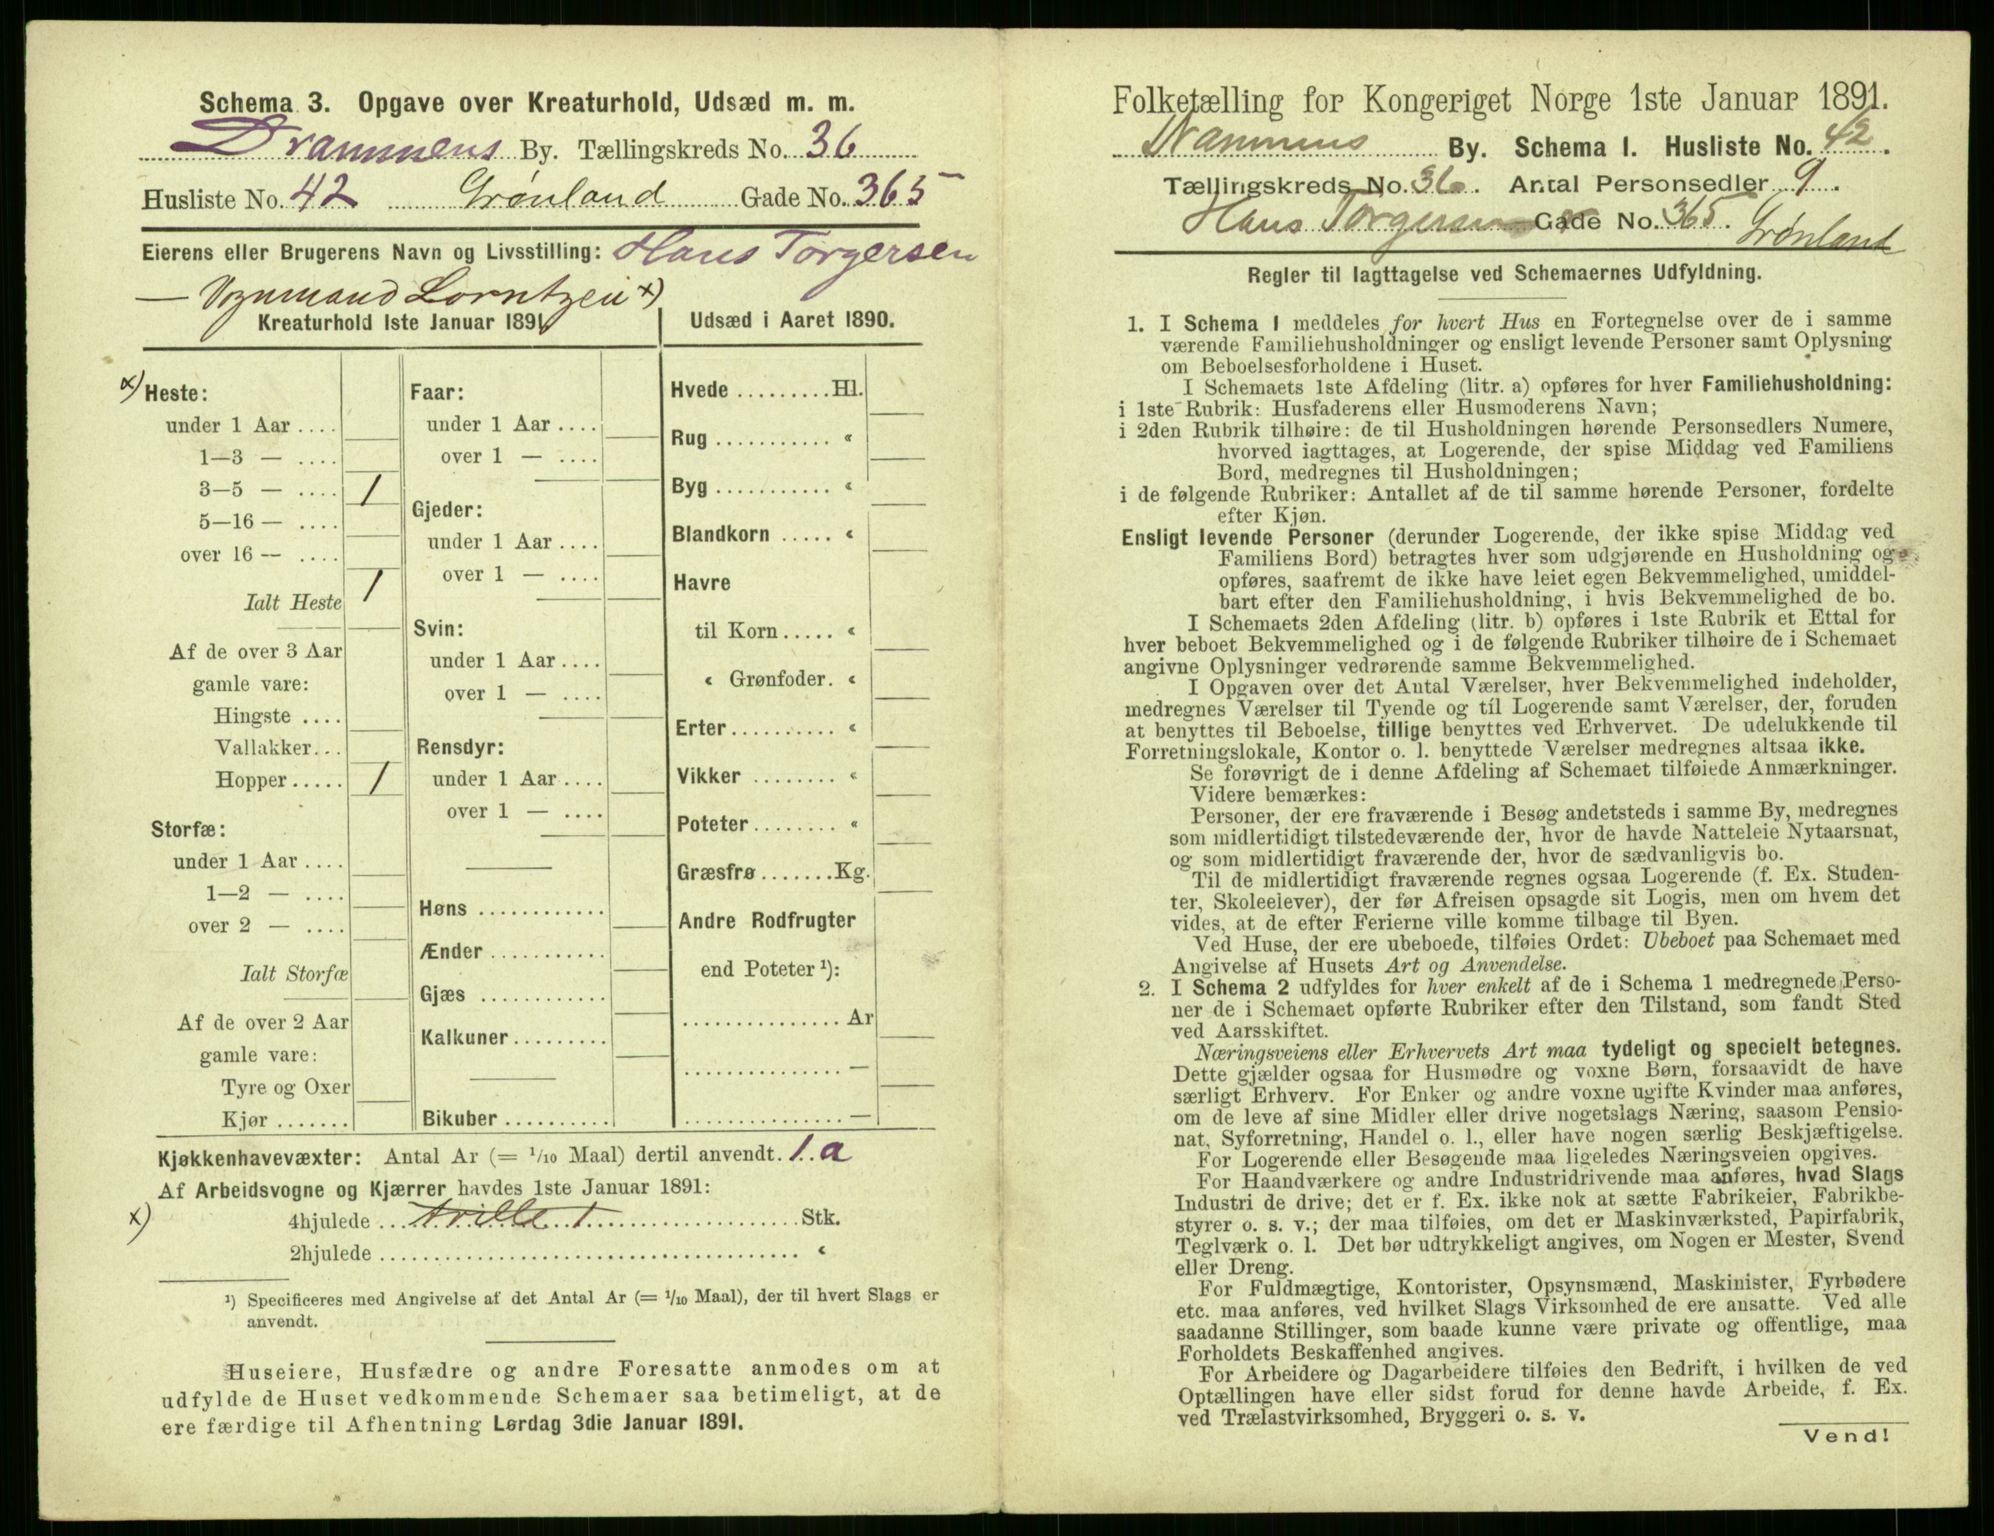 Schema 3. Opgave over Kreaturhold, Udsæd m. m.
Drammens By. Tællingskreds No. 36
Husliste No. 42 Grønland Gade No. 365
Eierens eller Brugerens Navn og Livsstilling: Hans Torgersen
— Vognmand Lorntzen x)
Kreaturhold 1ste Januar 1891
x) Heste:
under 1 Aar ....
1—3 — ....
3—5 — .... 1
5—16 — ....
over 16 — ....
Ialt Heste 1
Af de over 3 Aar
gamle vare:
Hingste ....
Vallakker...
Hopper..... 1
Storfæ:
under 1 Aar ....
1—2 — ....
over 2 — ....
Ialt Storfæ
Af de over 2 Aar
gamle vare:
Tyre og Oxer
Kjør .......
Faar:
under 1 Aar ....
over 1 — ....
Gjeder:
under 1 Aar ....
over 1 — ....
Svin:
under 1 Aar ....
over 1 — ....
Rensdyr:
under 1 Aar ....
over 1 — ....
Høns ............
Ænder ...........
Gjæs ............
Kalkuner.........
Bikuber ..........
Udsæd i Aaret 1890.
Hvede .........Hl.
Rug ........... «
Byg ........... «
Blandkorn ..... «
Havre
til Korn..... «
« Grønfoder. «
Erter.......... «
Vikker ........ «
Poteter........ «
Græsfrø.......Kg.
Andre Rodfrugter
end Poteter ¹):
............... Ar
............... —
............... —
Kjøkkenhavevæxter: Antal Ar (= 1/10 Maal) dertil anvendt. 1 a
Af Arbeidsvogne og Kjærrer havdes 1ste Januar 1891:
x) 4hjulede ... trille 1 ............ Stk.
2hjulede ............................ «
¹) Specificeres med Angivelse af det Antal Ar (= 1/10 Maal), der til hvert Slags er
anvendt.
Huseiere, Husfædre og andre Foresatte anmodes om at
udfylde de Huset vedkommende Schemaer saa betimeligt, at de
ere færdige til Afhentning Lørdag 3die Januar 1891.
Folketælling for Kongeriget Norge 1ste Januar 1891.
Drammens By. Schema I. Husliste No. 42.
Tællingskreds No. 36. Antal Personsedler 9.
Hans Torgersen Gade No. 365. Grønland
Regler til Iagttagelse ved Schemaernes Udfyldning.
1. I Schema 1 meddeles for hvert Hus en Fortegnelse over de i samme
værende Familiehusholdninger og ensligt levende Personer samt Oplysning
om Beboelsesforholdene i Huset.
I Schemaets 1ste Afdeling (litr. a) opføres for hver Familiehusholdning:
i 1ste Rubrik: Husfaderens eller Husmoderens Navn;
i 2den Rubrik tilhøire: de til Husholdningen hørende Personsedlers Numere,
hvorved iagttages, at Logerende, der spise Middag ved Familiens
Bord, medregnes til Husholdningen;
i de følgende Rubriker: Antallet af de til samme hørende Personer, fordelte
efter Kjøn.
Ensligt levende Personer (derunder Logerende, der ikke spise Middag ved
Familiens Bord) betragtes hver som udgjørende en Husholdning og
opføres, saafremt de ikke have leiet egen Bekvemmelighed, umiddel-
bart efter den Familiehusholdning, i hvis Bekvemmelighed de bo.
I Schemaets 2den Afdeling (litr. b) opføres i 1ste Rubrik et Ettal for
hver beboet Bekvemmelighed og i de følgende Rubriker tilhøire de i Schemaet
angivne Oplysninger vedrørende samme Bekvemmelighed.
I Opgaven over det Antal Værelser, hver Bekvemmelighed indeholder,
medregnes Værelser til Tyende og til Logerende samt Værelser, der, foruden
at benyttes til Beboelse, tillige benyttes ved Erhvervet. De udelukkende til
Forretningslokale, Kontor o. l. benyttede Værelser medregnes altsaa ikke.
Se forøvrigt de i denne Afdeling af Schemaet tilføiede Anmærkninger.
Videre bemærkes:
Personer, der ere fraværende i Besøg andetsteds i samme By, medregnes
som midlertidigt tilstedeværende der, hvor de havde Natteleie Nytaarsnat,
og som midlertidigt fraværende der, hvor de sædvanligvis bo.
Til de midlertidigt fraværende regnes ogsaa Logerende (f. Ex. Studen-
ter, Skoleelever), der før Afreisen opsagde sit Logis, men om hvem det
vides, at de efter Ferierne ville komme tilbage til Byen.
Ved Huse, der ere ubeboede, tilføies Ordet: Ubeboet paa Schemaet med
Angivelse af Husets Art og Anvendelse.
2. I Schema 2 udfyldes for hver enkelt af de i Schema 1 medregnede Perso-
ner de i Schemaet opførte Rubriker efter den Tilstand, som fandt Sted
ved Aarsskiftet.
Næringsveiens eller Erhvervets Art maa tydeligt og specielt betegnes.
Dette gjælder ogsaa for Husmødre og voxne Børn, forsaavidt de have
særligt Erhverv. For Enker og andre voxne ugifte Kvinder maa anføres,
om de leve af sine Midler eller drive nogetslags Næring, saasom Pensio-
nat, Syforretning, Handel o. l., eller have nogen særlig Beskjæftigelse.
For Logerende eller Besøgende maa ligeledes Næringsveien opgives.
For Haandværkere og andre Industridrivende maa anføres, hvad Slags
Industri de drive; det er f. Ex. ikke nok at sætte Fabrikeier, Fabrikbe-
styrer o. s. v.; der maa tilføies, om det er Maskinværksted, Papirfabrik,
Teglværk o. l. Det bør udtrykkeligt angives, om Nogen er Mester, Svend
eller Dreng.
For Fuldmægtige, Kontorister, Opsynsmænd, Maskinister, Fyrbødere
etc. maa anføres, ved hvilket Slags Virksomhed de ere ansatte. Ved alle
saadanne Stillinger, som baade kunne være private og offentlige, maa
Forholdets Beskaffenhed angives.
For Arbeidere og Dagarbeidere tilføies den Bedrift, i hvilken de ved
Optællingen have eller sidst forud for denne havde Arbeide, f. Ex.
ved Trælastvirksomhed, Bryggeri o. s. v.
Vend!